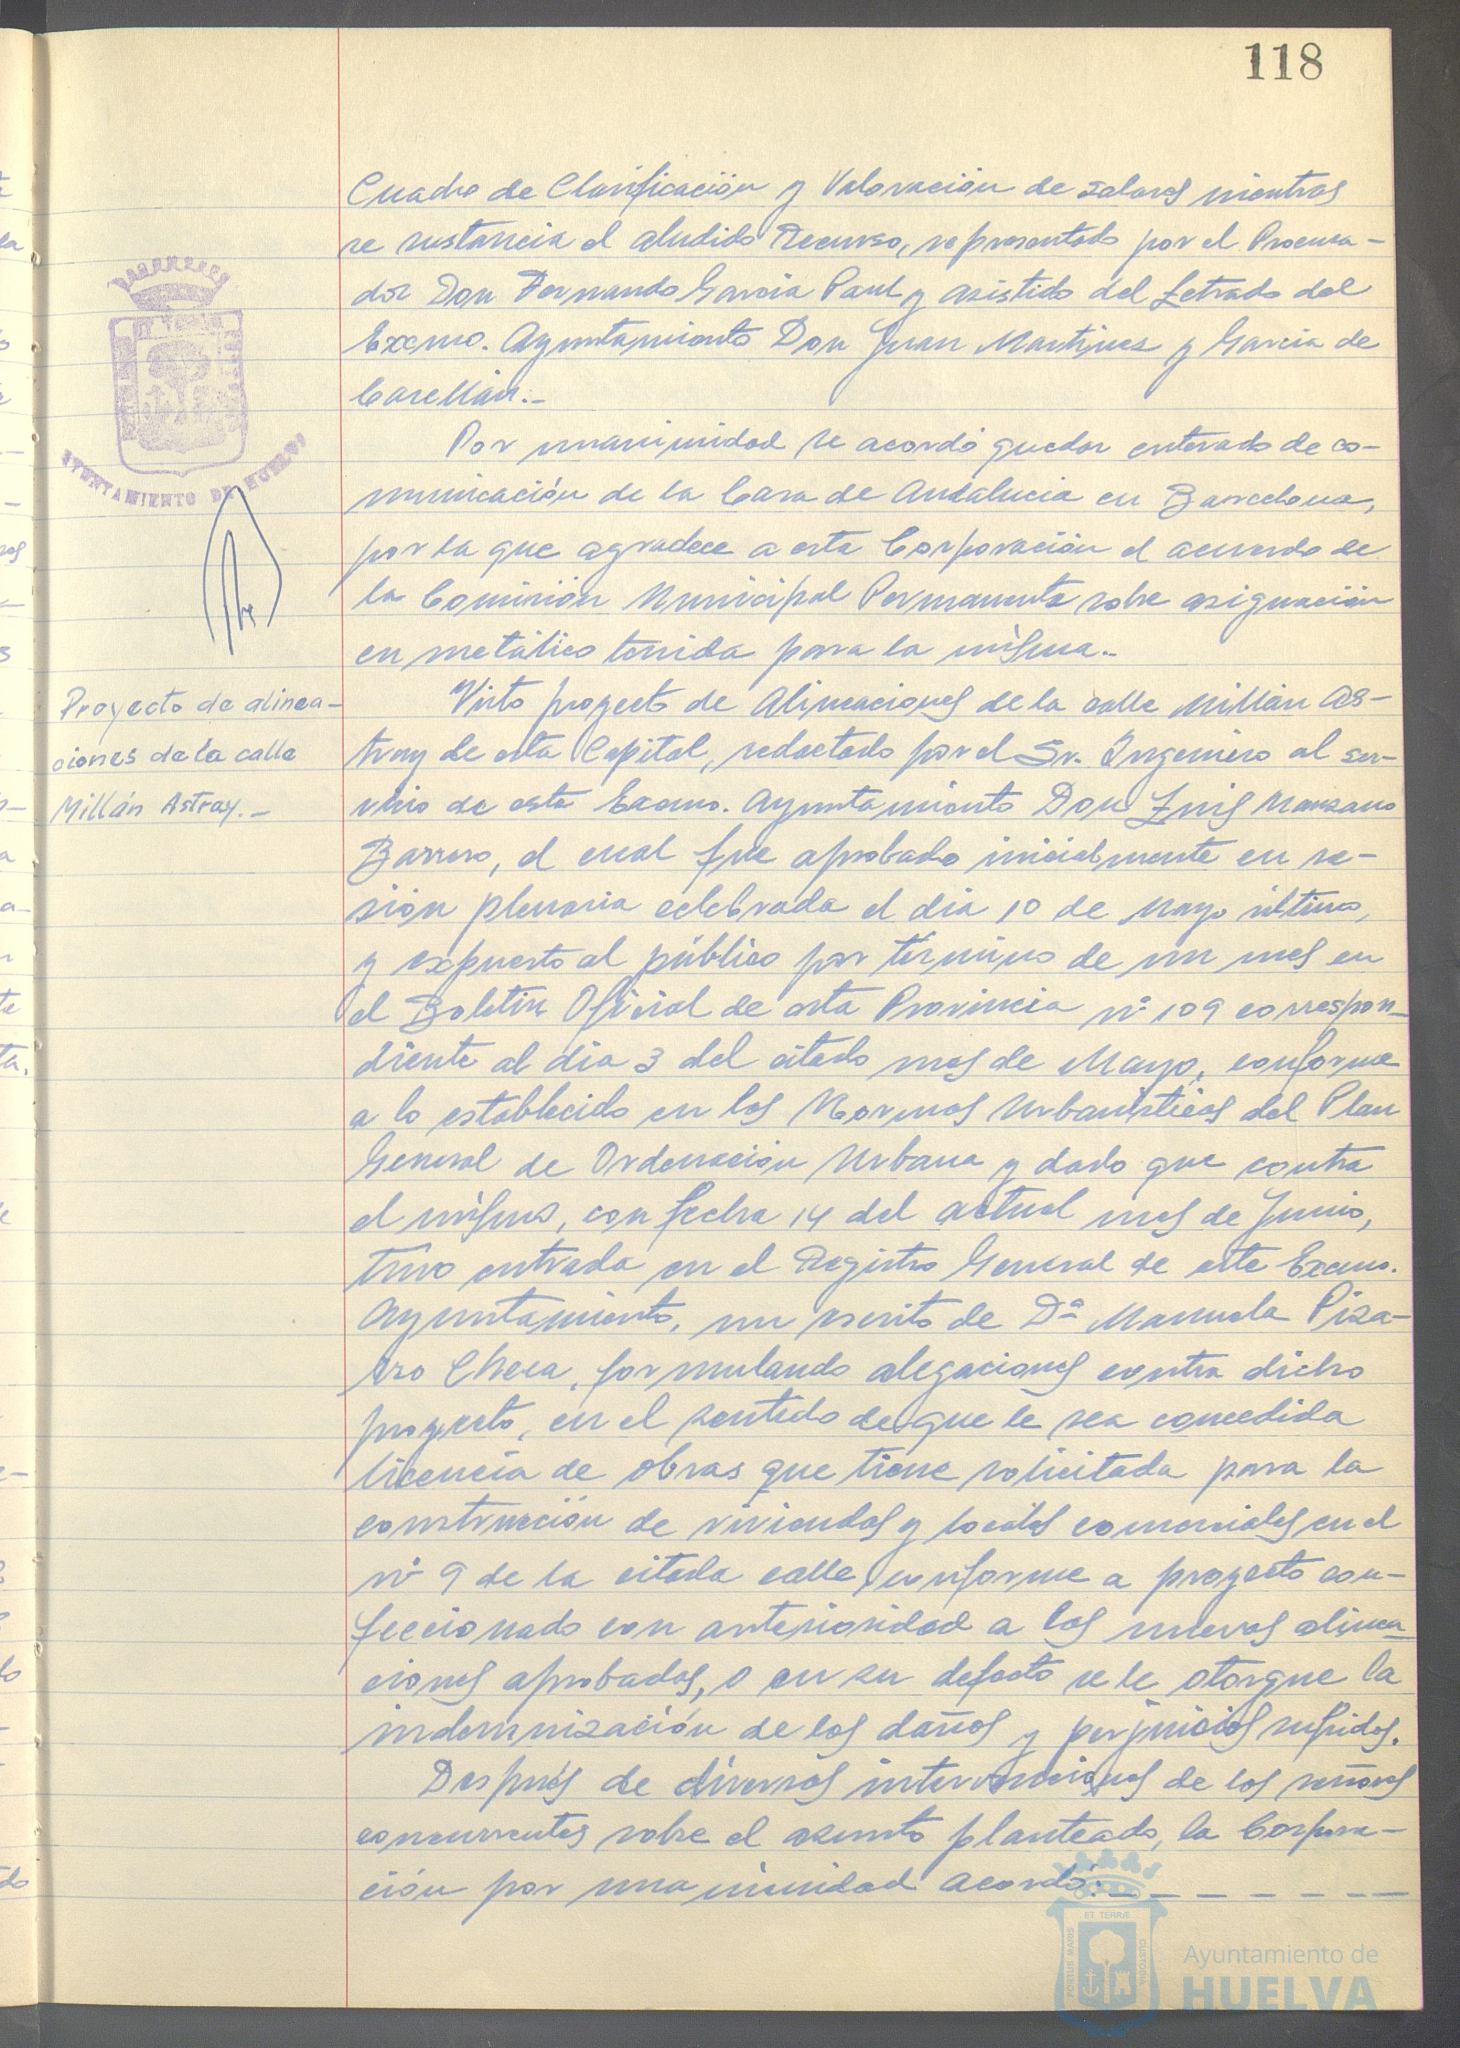 118
Cuadro de Clasificación y Valoración de solares mientras
se sustancia el aludido Recurso, representado por el Procura-
dor Don Fernando Garcia Paul y asistido del Letrado del
Excmo. Ayuntamiento Don Juan Martinez y Garcia de
Casellán.-
Por unanimidad se acordó quedar enterado de co-
municación de la Casa de Andalucia en Barcelona,
por la que agradece a esta Corporación el acuerdo de
la Comisión Municipal Permanente sobre asignación
en metálico tenida para la misma.-
Proyecto de alinea-
ciones de la calle
Millán Astray.-
Visto proyecto de Alineaciones de la calle Millán As-
tray de esta Capital, redactado por el Sr. Ingeniero al ser-
vicio de este Excmo. Ayuntamiento Don Luis Manzano
Barrero, el cual fue aprobado inicialmente en se-
sión plenaria celebrada el dia 10 de Mayo último,
y expuesto al público por término de un mes en
el Boletin Oficial de esta Provincia nº 109 correspon-
diente al dia 3 del citado mes de Mayo, conforme
a lo establecido en las Normas Urbanisticas del Plan
General de Ordenación Urbana y dado que contra
el mismo, con fecha 14 del actual mes de Junio,
tuvo entrada en el Registro General de este Excmo.
Ayuntamiento, un escrito de Dª Manuela Piza-
rro Checa, formulando alegaciones contra dicho
proyecto, en el sentido de que le sea concedida
licencia de obras que tiene solicitada para la
construcción de viviendas y locales comerciales en el
nº 9 de la citada calle, conforme a proyecto con-
feccionado con anterioridad a las nuevas alinea-
ciones aprobadas, o en su defecto se le otorgue la
indemnización de los daños y perjuicios sufridos.
Después de diversas intervenciones de los señores
concurrentes sobre el asunto planteado, la Corpora-
ción por unanimidad acordó:- - - - - - - -
AYUNTAMIENTO DE HUELVA
PORTUS MARIS ET TERRÆ CUSTODIA
Ayuntamiento de
HUELVA